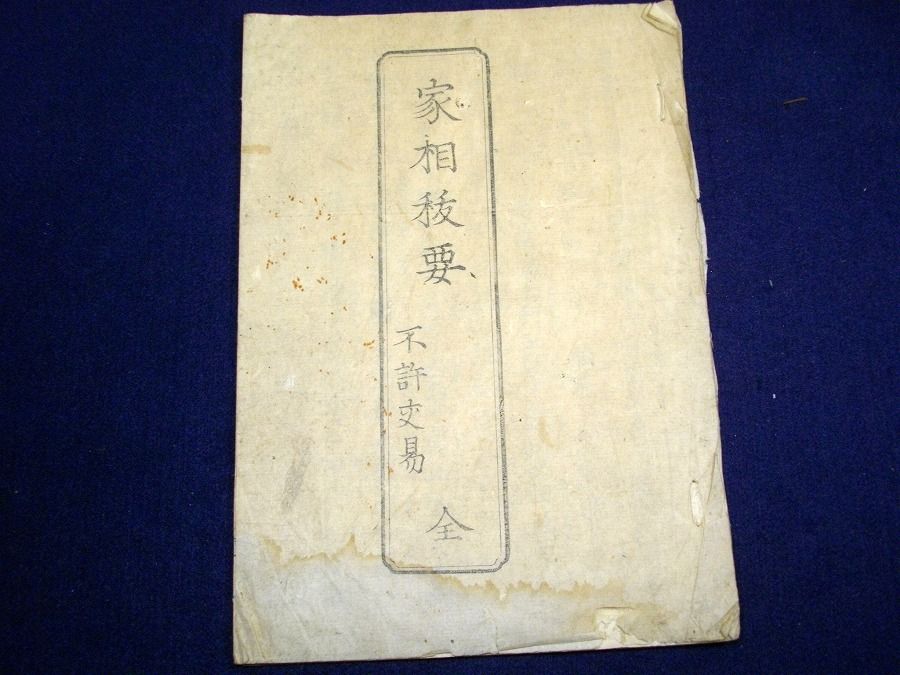 家相秘要
不許交易
全